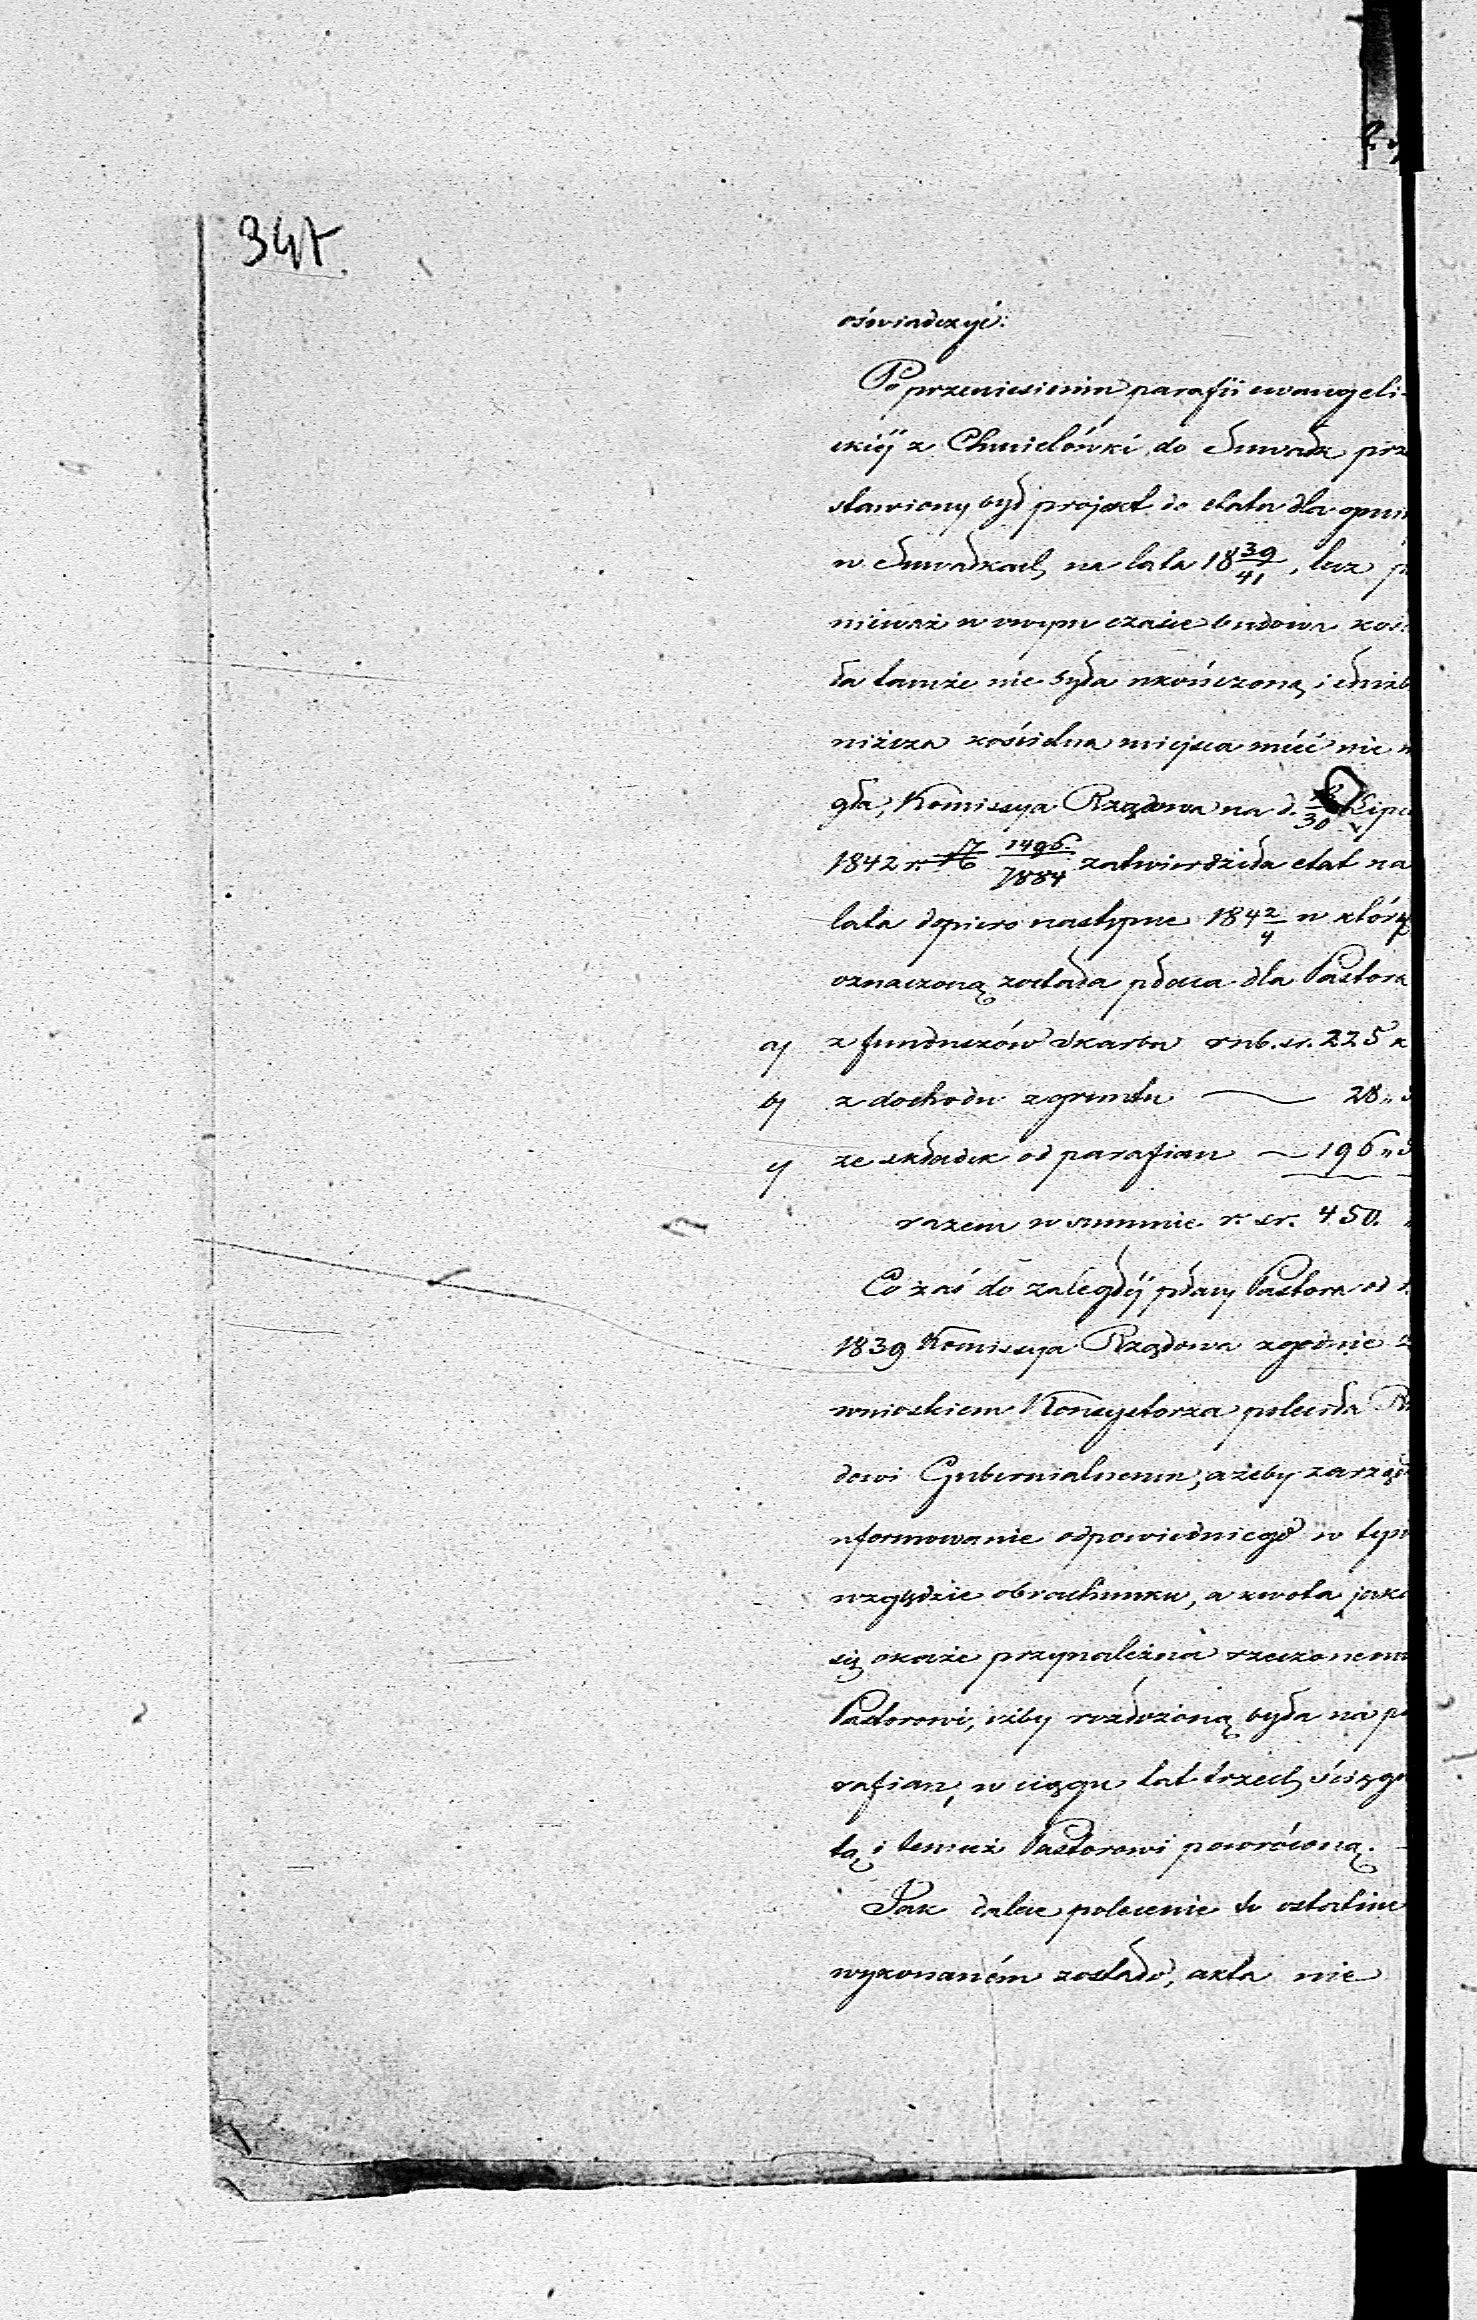 347.
oświadczyć:
Po przeniesieniu parafii ewangeli-
ckiéj z Chmielówki do Suwałk prze
stawiony był projekt do etatu dla gmin
w Suwałkach na lata 18 39/41, lecz p
nieważ w owym czasie budowa kośc
ła tamże nie była ukończoną i służb
niższa kościelna miejsca mieć nie m
gła, Kommissya Rządowa na d. /30 Lipc
1842 r. 1496/7884 zatwierdziła etat na
lata dopiero następne 184 2/4 w który
oznaczoną została płaca dla Pastora
a) z funduszów skarbu rub. sr. 225 k
b) z dochodu z gruntu — 28 „
c) ze składek od parafian — 196 „
razem w summie r. sr. 450.
Co zaś do zaległéj płacy Pastora od r.
1839 Kommissya Rządowa zgodnie z
wnioskiem Konsystorza poleciła Rz
dowi Gubernialnemu, ażeby zarząd
uformowanie odpowiedniego w tym
względzie obrachunku, a kwota jaka
się okaże przynależną rzeczonemu
Pastorowi, iżby rozłożoną była na pa
rafian, w ciągu lat trzech ściągn
tą i temuż Pastorowi powróconą.
Jak dalece polecenie to ostatnie
wykonaném zostało, akta nie